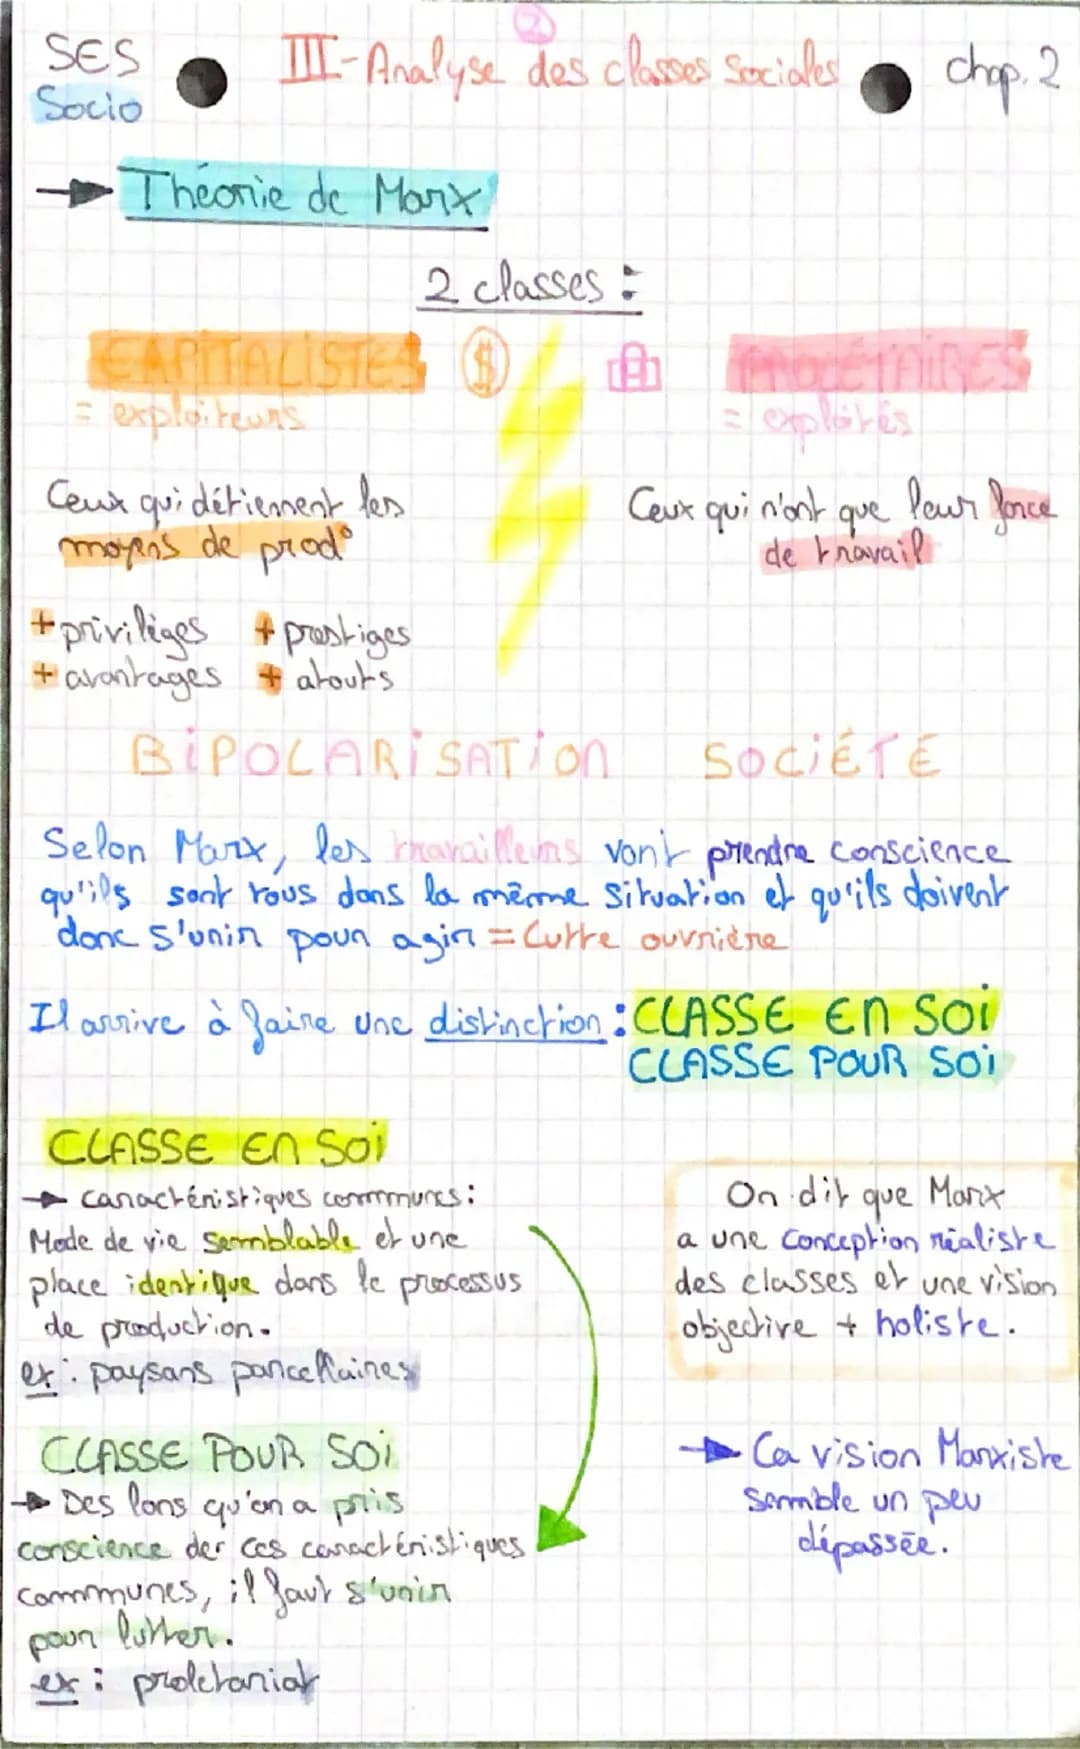 2
SES
Socio
III-Analyse des classes Sociales
chap. 2
→ Théorie de Marx
2 classes :
CAPITALISTES
$
PROLÉTAIRES
= exploiteurs
= exploités
Ceux qui détiennent les
moyens de prod°
Ceux qui n'ont que leur force
de travail
+ privilèges + prestiges
+ avantages + atouts
BiPOLARiSATiOn SOCiÉTÉ
Selon Marx, les travailleurs vont prendre conscience
qu'ils sont tous dans la même situation et qu'ils doivent
donc s'unir pour agir = Lutte ouvrière
Il arrive à faire une distinction : CLASSE En SOi
CLASSE POUR SOi
CLASSE En SOi
→ caractéristiques communes :
Mode de vie semblable et une
place identique dans le processus
de production.
ex : paysans parcellaires
CLASSE POUR SOi
→ Des lors qu'on a pris
conscience der ces caractéristiques
communes, il faut s'unir
pour lutter.
ex : proletariat
On dit que Marx
a une conception réaliste
des classes et une vision
objective + holiste.
→ La vision Marxiste
semble un peu
dépassée.